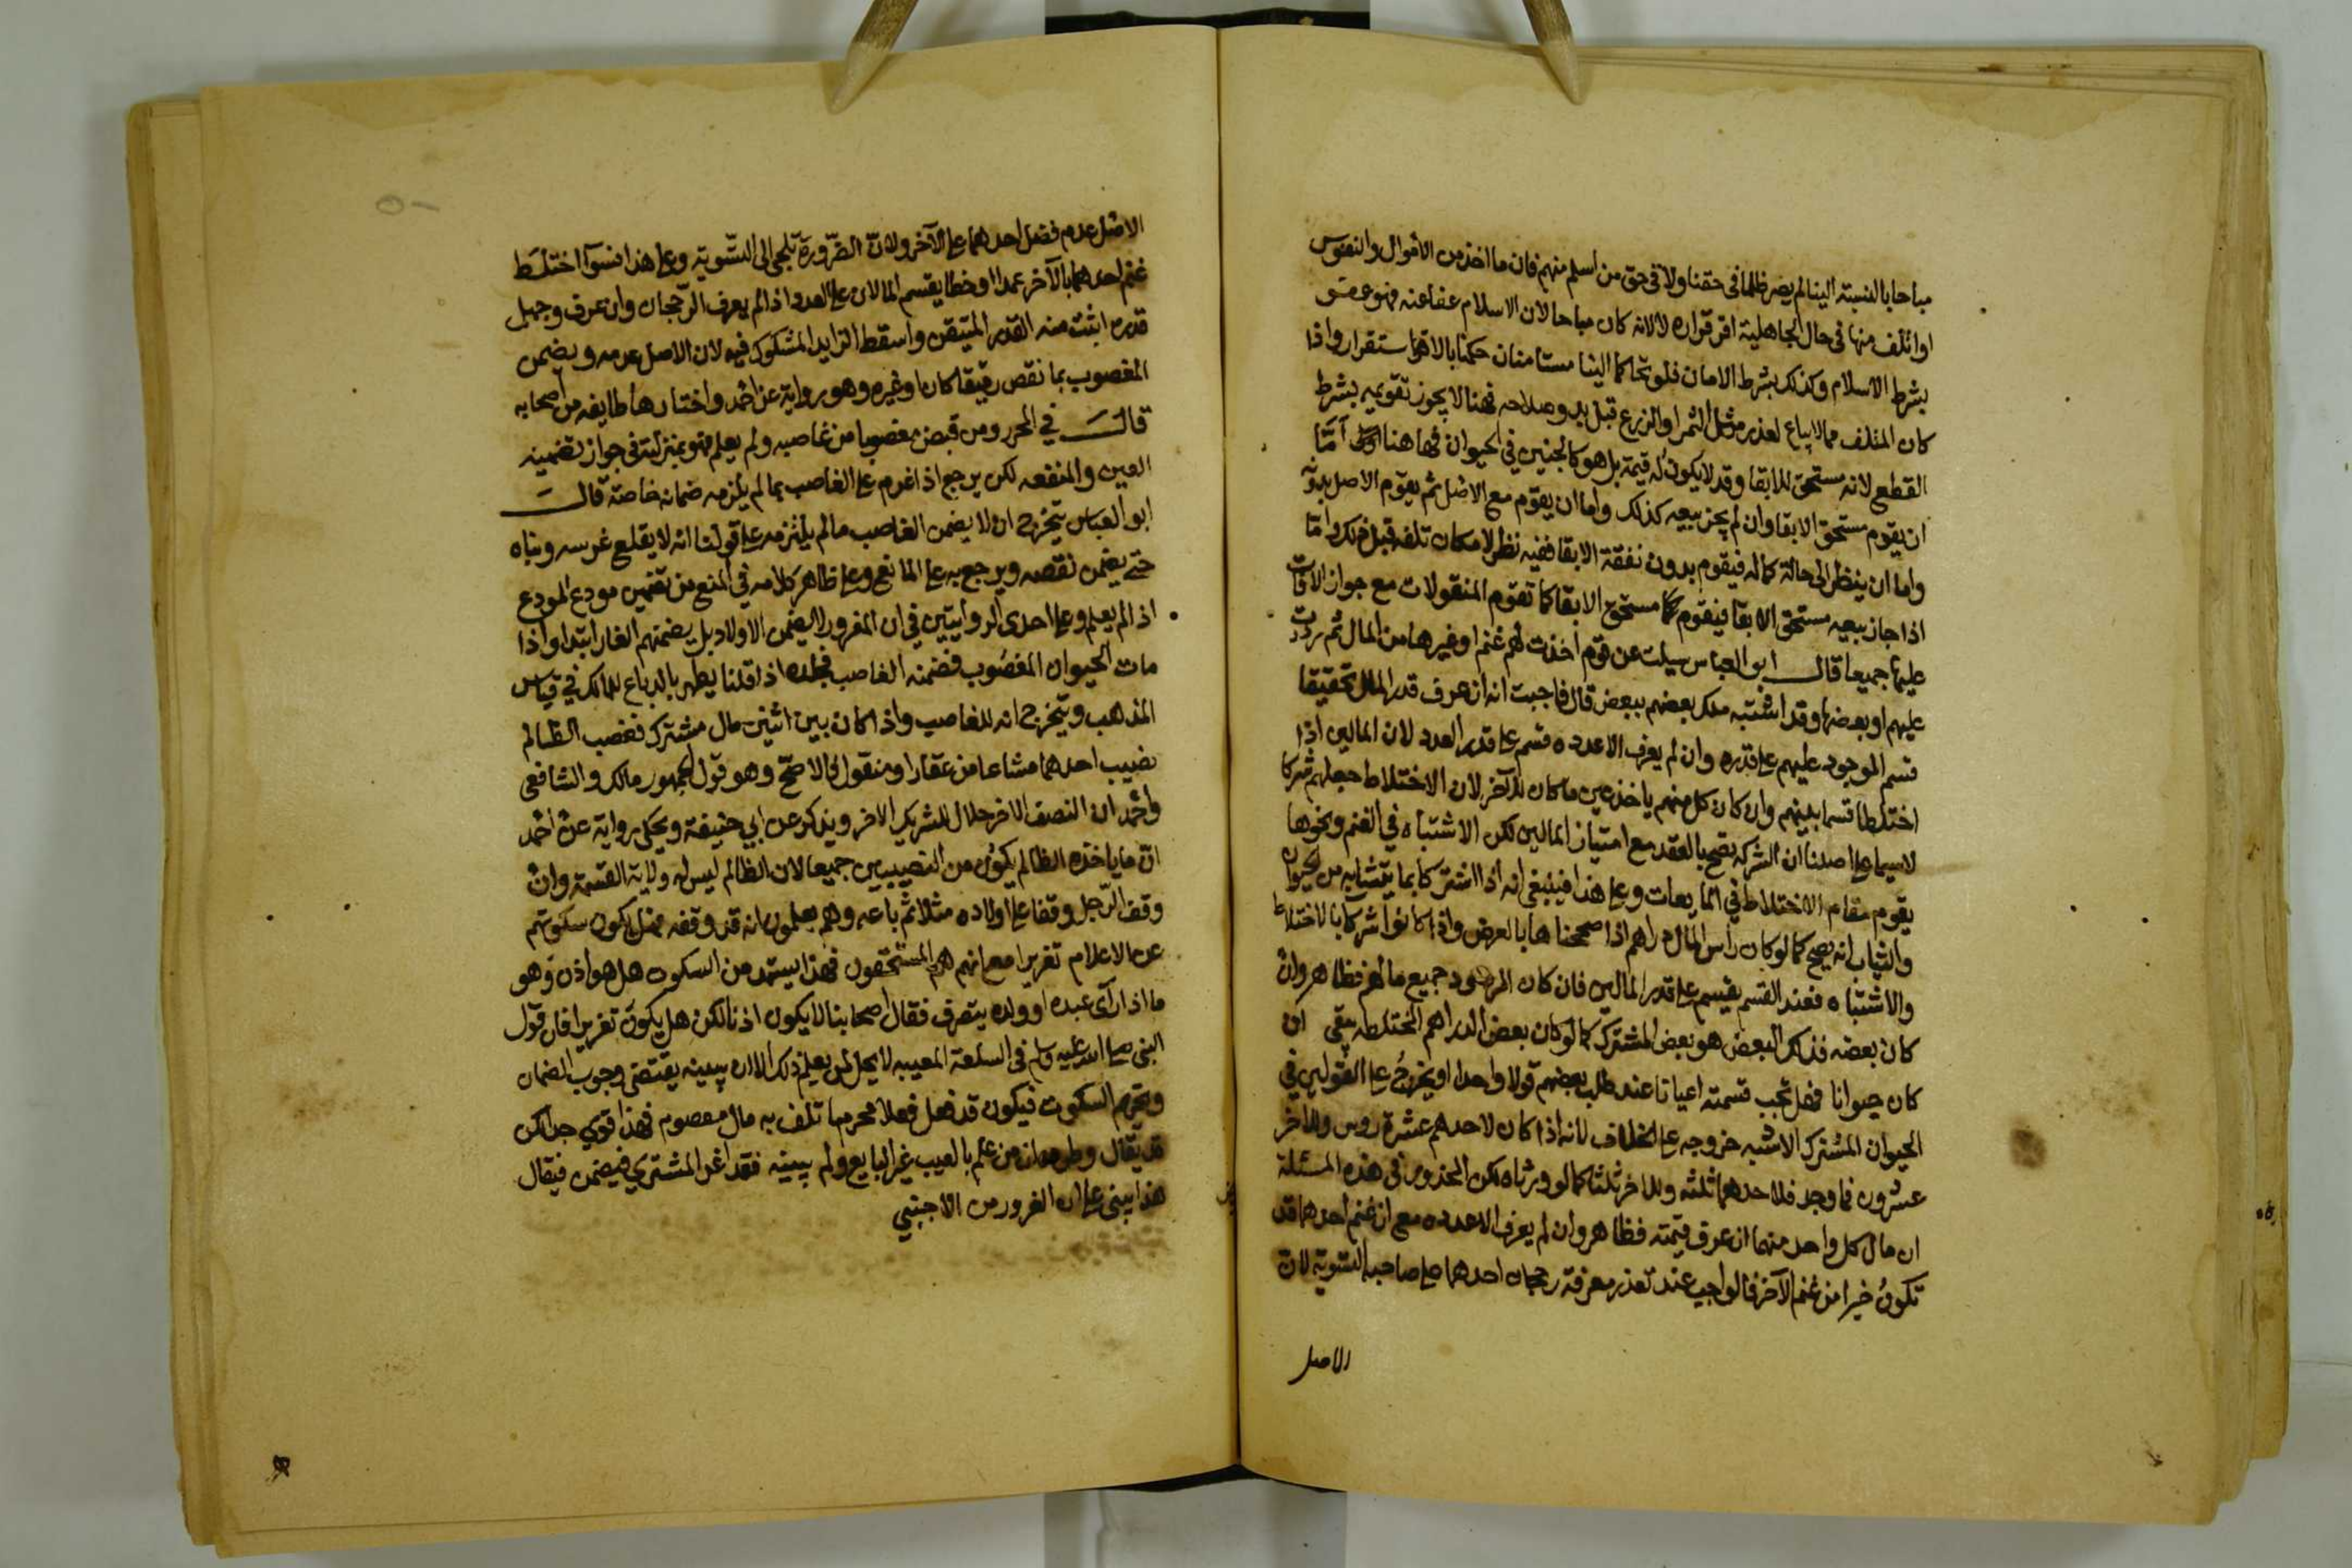 مباحا بالنسبة الينا لم يصر ظلما فى حقنا ولا فى حق من اسلم منهم فان ما اخذ من الاموال والنفوس
او اتلف منها فى حال الجاهلية اقر قراره لا لانه كان مباحا لان الاسلام عفا عنه فهو عفو
بشرط الاسلام وكذلك بشرط الامان فلو تحاكما الينا مستامنان حكمنا بالاستقرار واذا
كان المتلف مما لا يباع لعذر مثل الثمر او الزرع قبل بدو صلاحه فهنا لا يجوز تقويمه بشرط
القطع لانه مستحق للابقا وقد لا يكون له قيمة بل هو كالجنين في الحيوان فها هنا اما
ان يقوم مستحق الابقا وان لم يجز بيعه كذلك واما ان يقوم مع الاصل ثم يقوم الاصل بدونه
واما ان ينظر الى حالة كماله فيقوم بدون نفقة الابقا ففيه نظر لامكان تلفه قبل ذلك واما
اذا جاز بيعه مستحق الابقا فيقوم كما مستحق الابقا كما تقوم المنقولات مع جواز الافات
عليها جميعا قال ابو العباس سيلت عن قوم اخذت لهم غنم او غيرها من المال ثم ردت
عليهم او بعضها وقد اشتبه ملك بعضهم ببعض قال فاجبت انه ان عرف قدر المال تحقيقا
قسم الموجود عليهم على قدره وان لم يعرف الا عدده قسم على قدر العدد لان المالين اذا
اختلطا قسما بينهم وان كان كل منهم ياخذ عين ما كان للآخر لان الاختلاط جعلهم شركا
لاسيما على اصلنا ان الشركة تصح بالعقد مع امتياز المالين لكن الاشتباه في الغنم ونحوها
يقوم مقام الاختلاط في المايعات وعلى هذا فينبغي انه اذا اشتركا بما يتشابه من الحيوان
والثياب انه يصح كما لو كان راس المال دراهم اذا صححناها بالعرض واذا كانوا شركا بالاختلاط
والاشتباه فعند القسم يقسم على قدر المالين فان كان المردود جميع مالهم فظاهر وان
كان بعضه فذلك البعض هو بعض المشترك كما لو كان بعض الدراهم المختلطه يبقى ان
كان حيوانا فهل تجب قسمته اعيانا عند طلب بعضهم قولا واحدا او يخرج على القولين في
الحيوان المشترك الاشبه خروجه على الخلاف لانه اذا كان لاحدهم عشرة روس وللاخر
عشرون فما وجد فلاحدهما ثلثه وللاخر ثلثاه كما لو ورثاه لكن المحذور فى هذه المسئلة
ان مال كل واحد منهما ان عرف قيمته فظاهر وان لم يعرف الا عدده مع ان غنم احدهما قد
تكون خيرا من غنم الآخر فالواجب عند تعذر معرفة رجحان احدهما على صاحبه التسوية لان
الاصل
الاصل عدم فضل احدهما على الآخر ولان الضرورة تلجي الى التسوية وعلى هذا فسوآ اختلط
غنم احدهما بالآخر عمدا او خطا يقسم المالان على العدد اذا لم يعرف الرجحان وان عرف وجهل
قدره اثبت منه القدر المتيقن واسقط الزايد المشكوك فيه لان الاصل عدمه ويضمن
المغصوب بما نقص رقيقا كان او غيره وهو رواية عن احمد واختارها طايفه من اصحابه
قال في المحرر ومن قبض مغصوبا من غاصبه ولم يعلم فهو بمنزلته فى جواز تضمينه
العين والمنفعه لكن يرجع اذا غرم على الغاصب بما لم يلزمه ضمانه خاصة قال
ابو العباس يتخرج ان لا يضمن الغاصب ما لم يلتزمه على قولنا انه لا يقلع غرسه وبناه
حتى يضمن نقصه ويرجع به على البايع وعلى ظاهر كلامه في المنع من تضمين مودع المودع
اذا لم يعلم وعلى احدى الروايتين في ان المغرور لا يضمن الاولاد بل يضمنهم الغار ابتدا واذا
مات الحيوان المغصوب فضمنه الغاصب فجلده اذا قلنا يطهر بالدباغ للمالك في قياس
المذهب ويتخرج انه للغاصب واذا كان بين اثنين مال مشترك فغصب الظالم
نصيب احدهما مشاعا من عقار او منقول فالاصح وهو قول الجمهور مالك والشافعي
واحمد ان النصف الاخر حلال للشريك الاخر ويذكر عن ابي حنيفة ويحكى رواية عن احمد
ان ما ياخذه الظالم يكون من النصيبين جميعا لان الظالم ليس له ولاية القسمة وان
وقف الرجل وقفا على اولاده مثلا ثم باعه وهم يعلمون انه قد وقفه فهل يكون سكوتهم
عن الاعلام تغريرا مع انهم هم المستحقون فهذا يستمد من السكوت هل هو اذن وهو
ما اذا رآى عبده او ولده يتصرف فقال اصحابنا لا يكون اذنا لكن هل يكون تغريرا فان قول
النبي صلى الله عليه وسلم في السلعة المعيبه لا يحل لمن يعلم ذلك الا ان يبينه يقتضي وجوب الضمان
وتحريم السكوت فيكون قد فعل فعلا محرما تلف به مال معصوم فهذا قوي جدا لكن
قد يقال من علم بالعيب غير البايع ولم يبينه فقد غر المشتري فيضمن فيقال
هذا يبنى على ان الغرور من الاجنبي